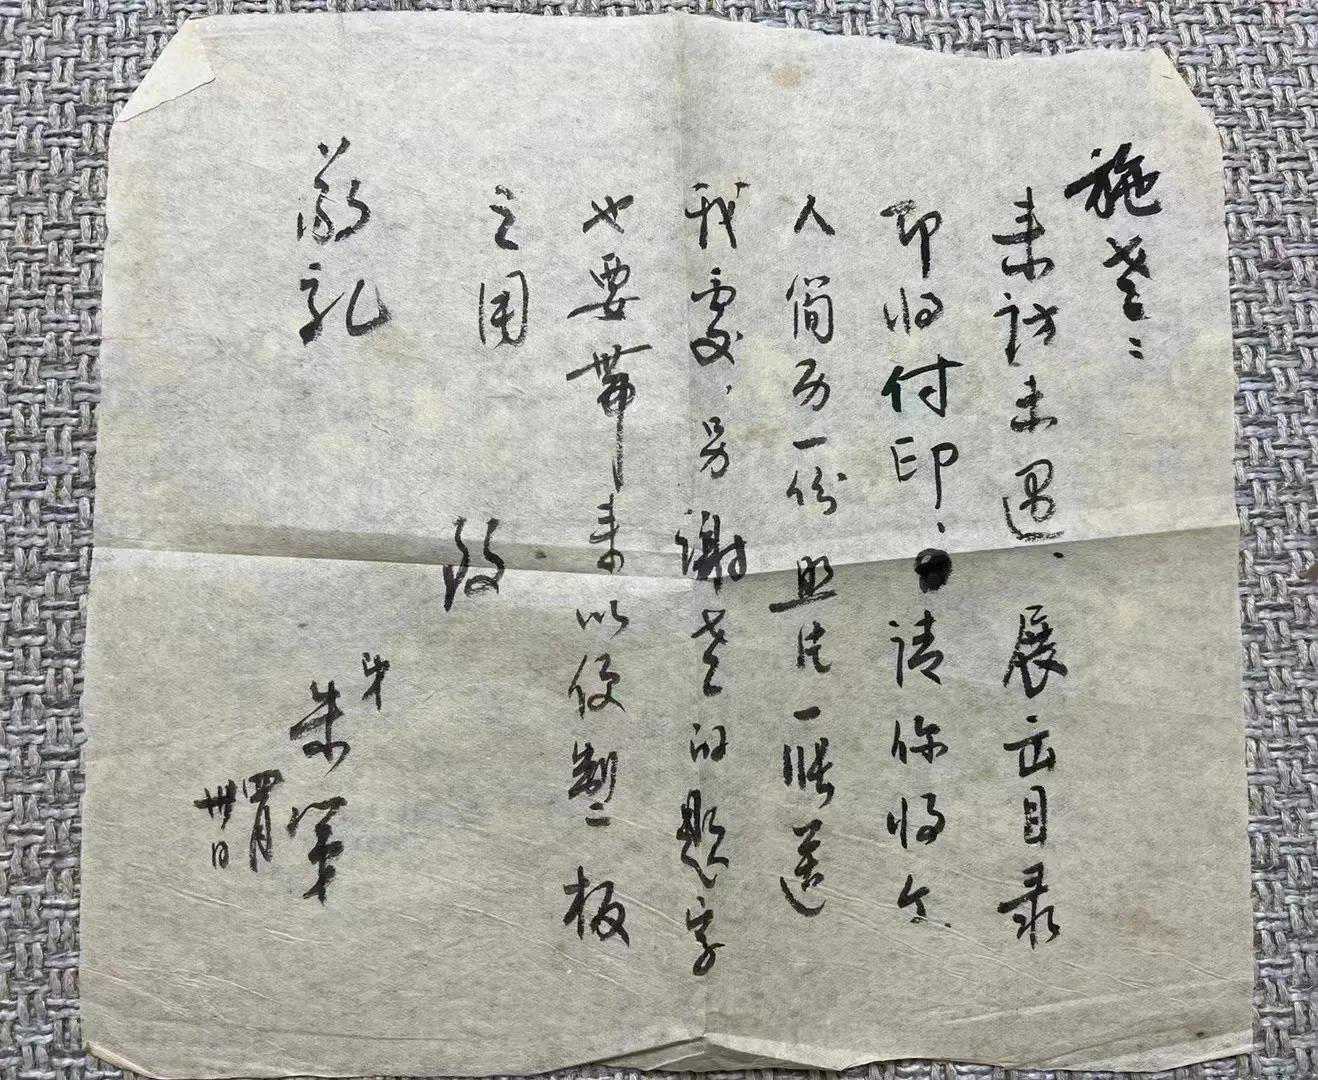 施老：
来访未遇、展出目录
即将付印、请你将个
人简历一份照片一张送
我处，另谢老的题字
也要带来以便製板
之用 致
敬礼
弟 朱
四月卅日